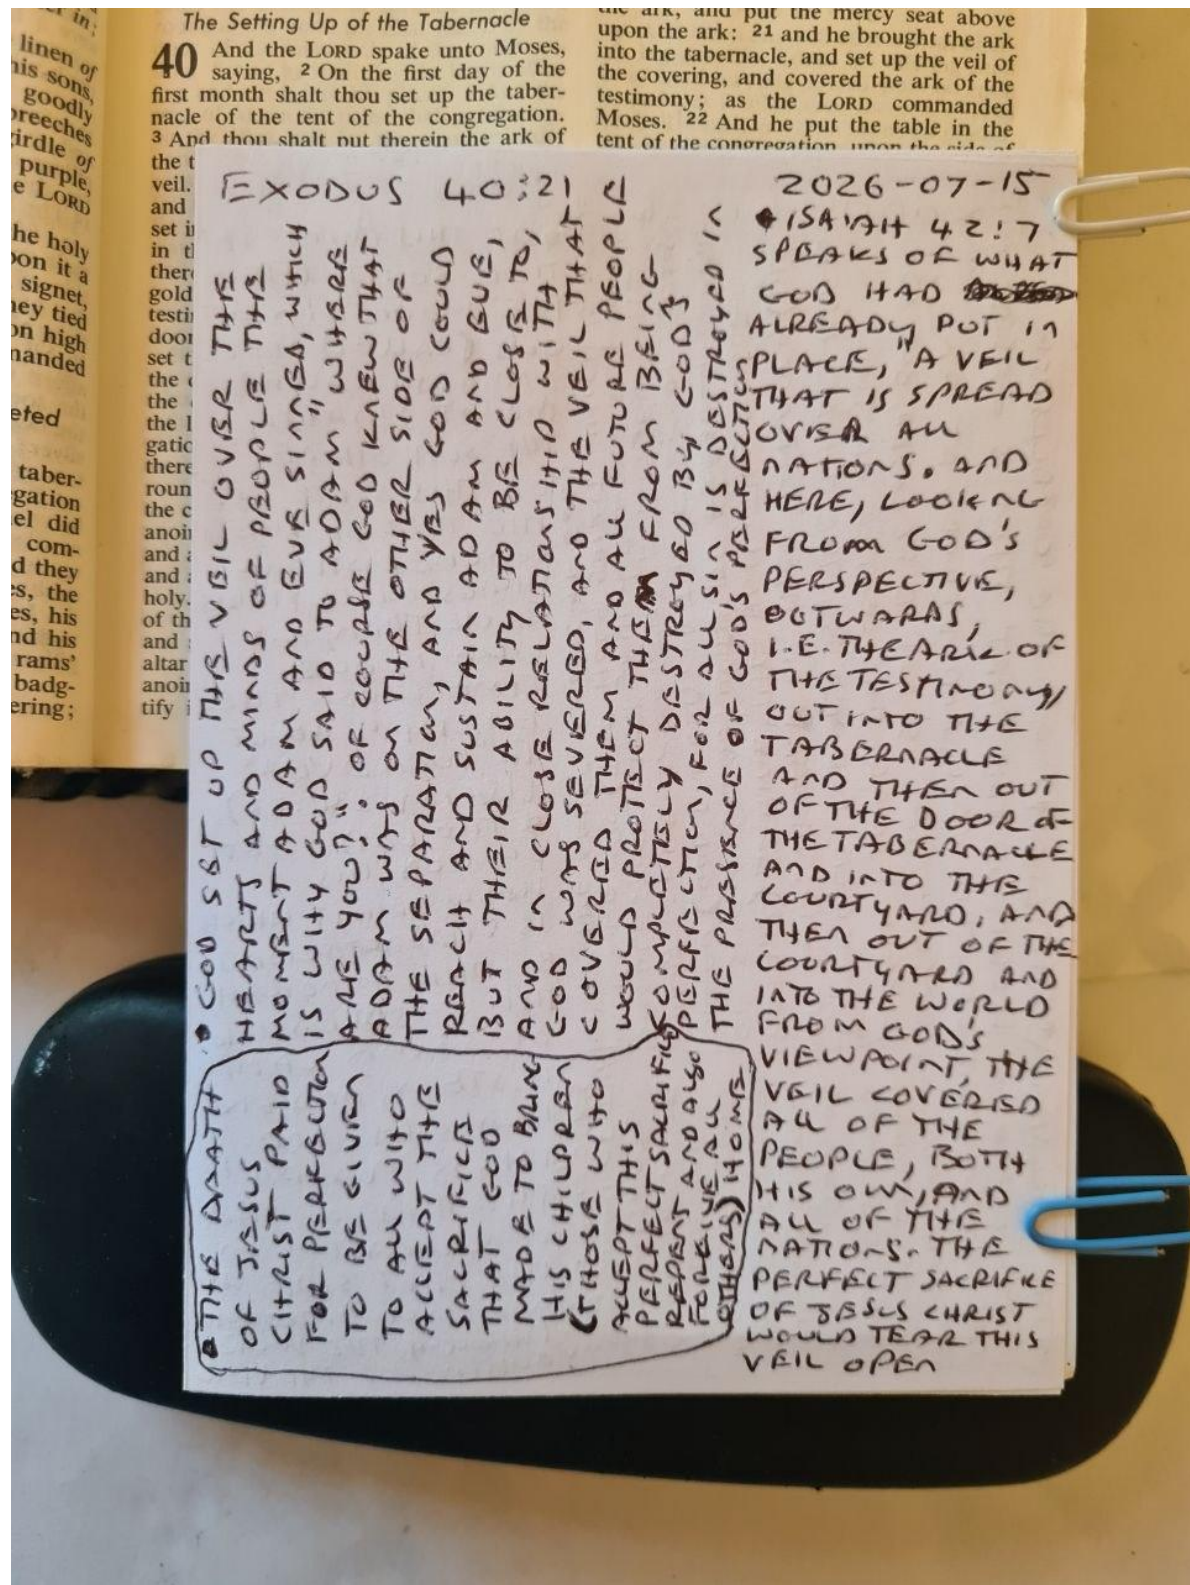 er in;
linen of
his sons,
goodly
breeches
girdle of
purple,
e LORD
he holy
pon it a
signet,
hey tied
on high
manded
eted
taber-
gation
el did
com-
d they
s, the
es, his
nd his
rams'
badg-
ering;
The Setting Up of the Tabernacle
40 And the LORD spake unto Moses,
saying, 2 On the first day of the
first month shalt thou set up the taber-
nacle of the tent of the congregation.
3 And thou shalt put therein the ark of
the t
veil.
and
set i
in t
ther
gold
testi
door
set t
the
the
the l
gatio
there
roun
the c
anoi
and a
and
holy.
of th
and
altar
anoi
tify
the ark, and put the mercy seat above
upon the ark: 21 and he brought the ark
into the tabernacle, and set up the veil of
the covering, and covered the ark of the
testimony; as the LORD commanded
Moses. 22 And he put the table in the
tent of the congregation, upon the side of
EXODUS 40:21
2026-07-15
• GOD SET UP THE VEIL OVER THE
HEARTS AND MINDS OF PEOPLE THE
MOMENT ADAM AND EVE SINNED, WHICH
IS WHY GOD SAID TO ADAM "WHERE
ARE YOU?". OF COURSE GOD KNEW THAT
ADAM WAS ON THE OTHER SIDE OF
THE SEPARATION, AND YES GOD COULD
REACH AND SUSTAIN ADAM AND EVE,
BUT THEIR ABILITY TO BE CLOSE TO,
AND IN CLOSE RELATIONSHIP WITH
GOD WAS SEVERED, AND THE VEIL THAT
COVERED THEM AND ALL FUTURE PEOPLE
WOULD PROTECT THEM FROM BEING
COMPLETELY DESTROYED BY GOD'S
PERFECTION, FOR ALL SIN IS DESTROYED IN
THE PRESENCE OF GOD'S PERFECTION
• THE DEATH
OF JESUS
CHRIST PAID
FOR PERFECTION
TO BE GIVEN
TO ALL WHO
ACCEPT THE
SACRIFICE
THAT GOD
MADE TO BRING
HIS CHILDREN
(THOSE WHO
ACCEPT THIS
PERFECT SACRIFICE
REPENT AND ALSO
FORGIVE ALL
OTHERS) HOME
• ISAIAH 42:7
SPEAKS OF WHAT
GOD HAD
ALREADY PUT IN
PLACE, "A VEIL
THAT IS SPREAD
OVER ALL
NATIONS. AND
HERE, LOOKING
FROM GOD'S
PERSPECTIVE,
OUTWARDS,
I.E. THE ARK OF
THE TESTIMONY
OUT INTO THE
TABERNACLE
AND THEN OUT
OF THE DOOR OF
THE TABERNACLE
AND INTO THE
COURTYARD, AND
THEN OUT OF THE
COURTYARD AND
INTO THE WORLD
FROM GOD'S
VIEWPOINT, THE
VEIL COVERED
ALL OF THE
PEOPLE, BOTH
HIS OWN, AND
ALL OF THE
NATIONS. THE
PERFECT SACRIFICE
OF JESUS CHRIST
WOULD TEAR THIS
VEIL OPEN